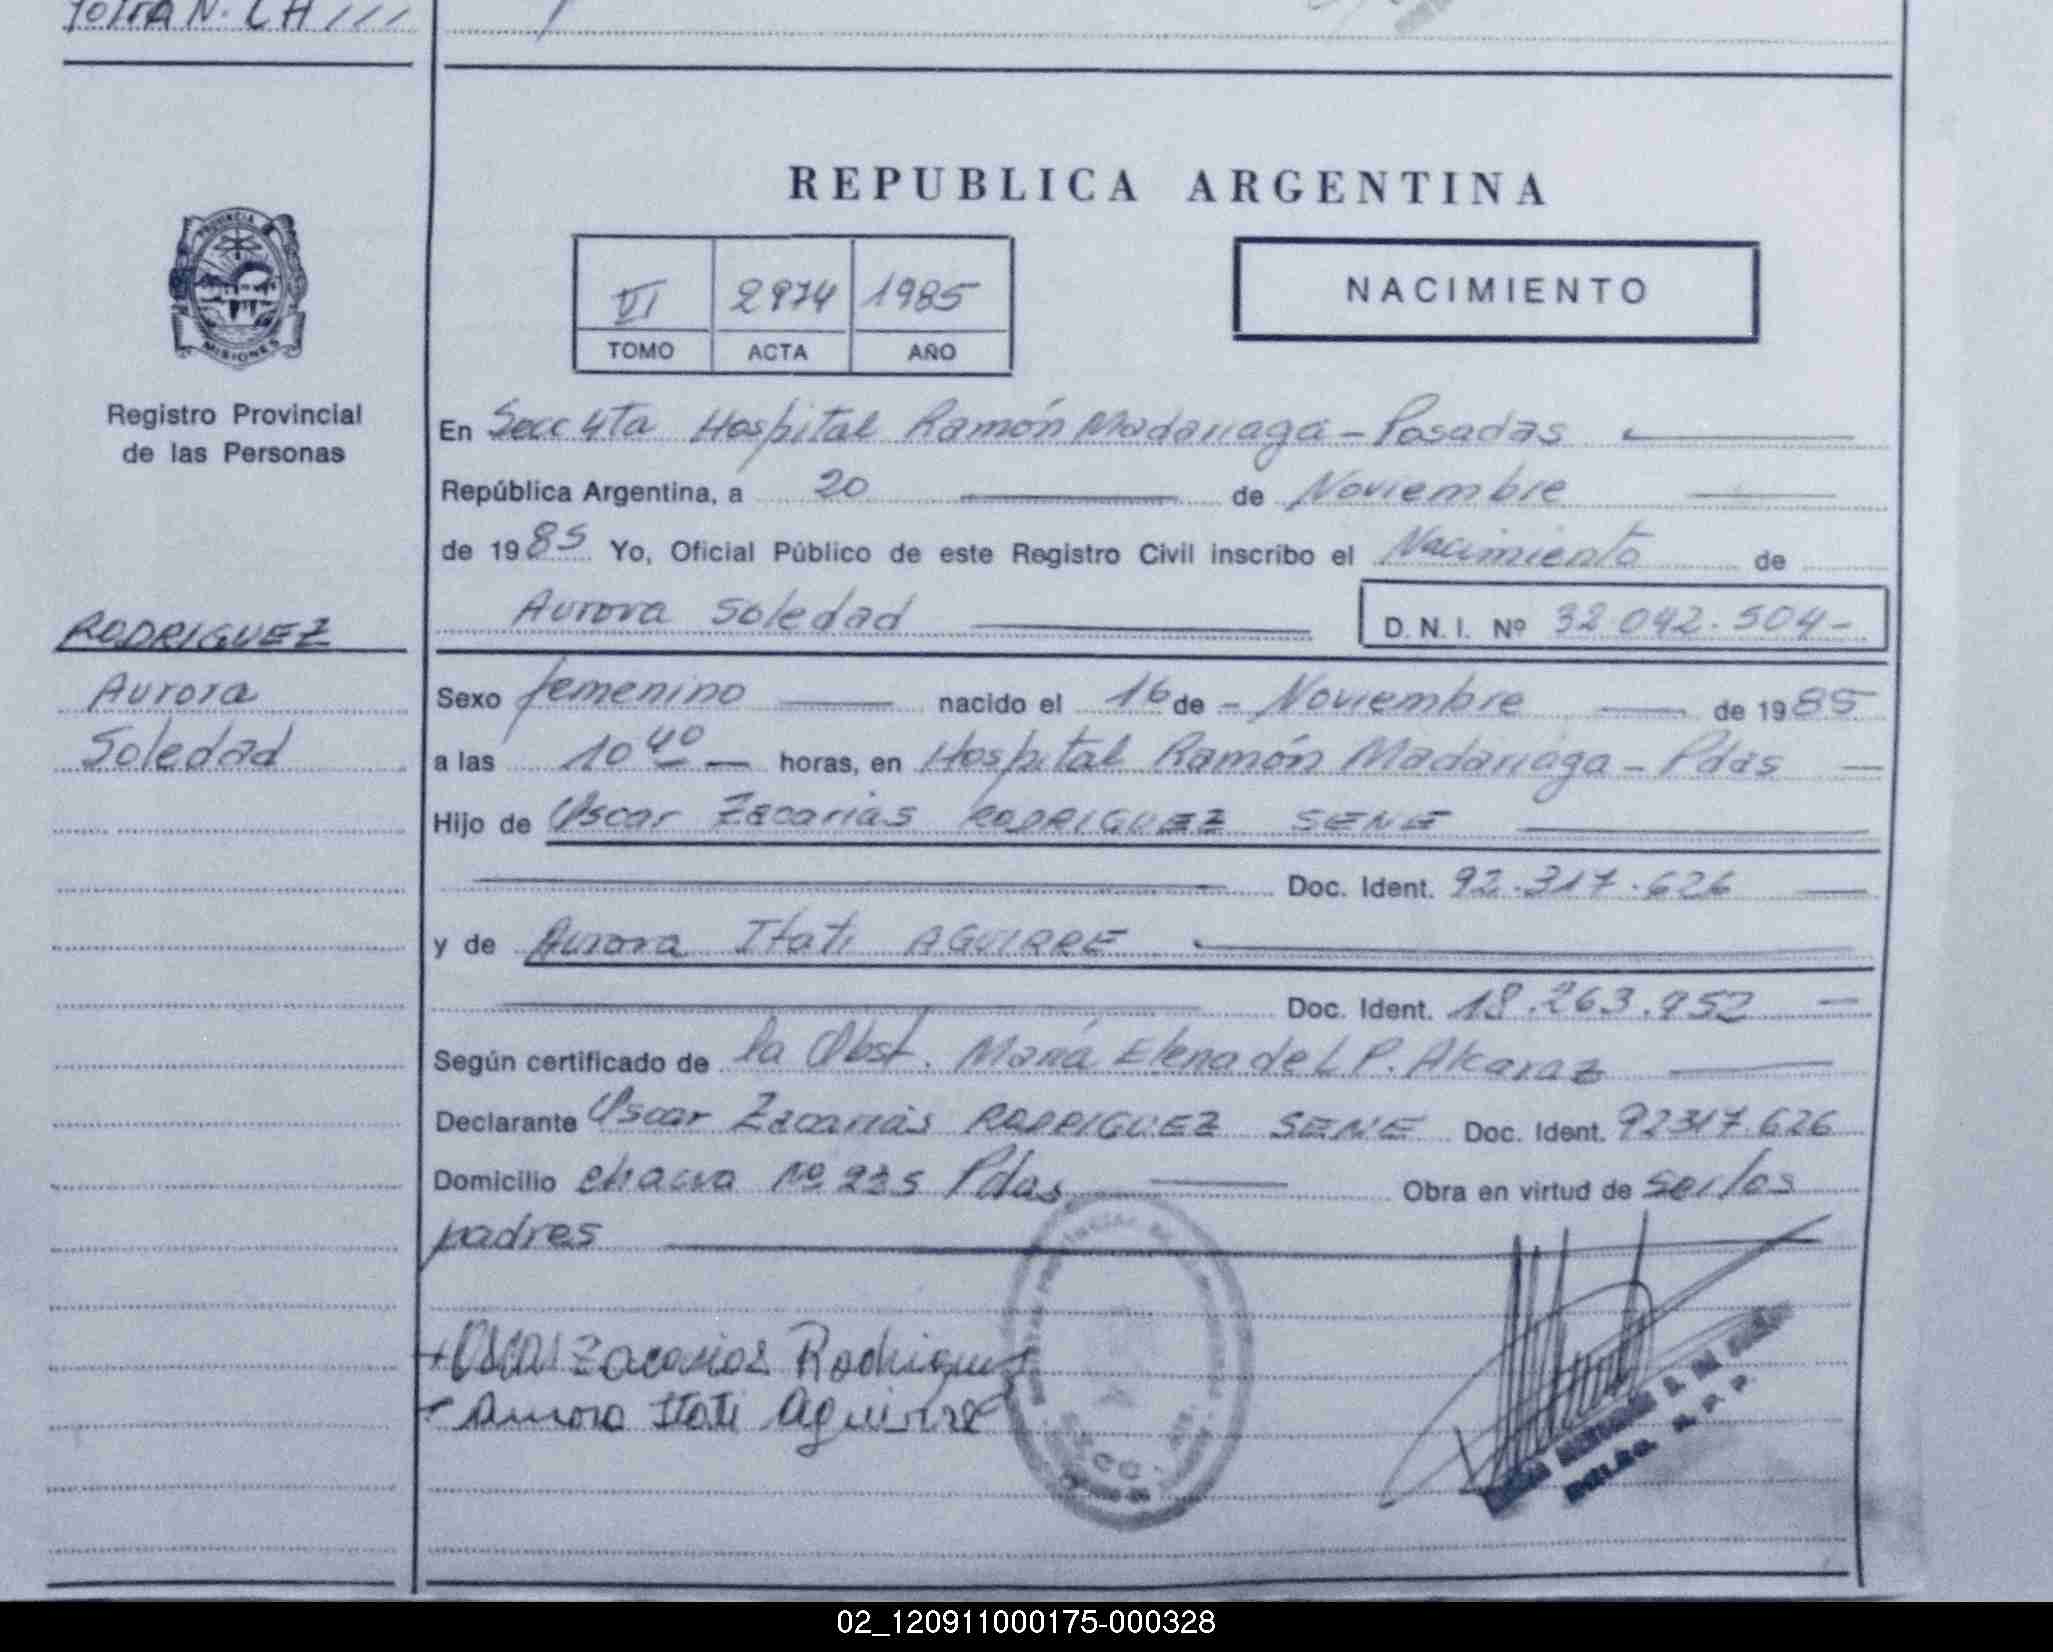 REPUBLICA ARGENTINA
PROVINCIA
MISIONES
Registro Provincial
de las Personas
VI 2974 1985
TOMO ACTA AÑO
NACIMIENTO
En Secc 4ta Hospital Ramón Madariaga - Posadas
República Argentina, a 20 de Noviembre
de 1985 Yo, Oficial Público de este Registro Civil inscribo el Nacimiento de
Aurora Soledad D.N.I. Nº 32.042.504-
RODRIGUEZ
Aurora
Soledad
Sexo femenino nacido el 16 de - Noviembre de 1985
a las 10 40 horas, en Hospital Ramón Madariaga - Pdas
Hijo de Oscar Zacarias RODRIGUEZ SENE
Doc. Ident. 92.317.626
y de Aurora Itati AGUIRRE
Doc. Ident. 18.263.952
Según certificado de la Obst. María Elena de L P. Alcaraz
Declarante Oscar Zacarias RODRIGUEZ SENE Doc. Ident. 92317.626
Domicilio chacra Nº 235 Pdas Obra en virtud de ser los
padres
Oscar Zacarias Rodriguez
Aurora Itati Aguirre
02_120911000175-000328